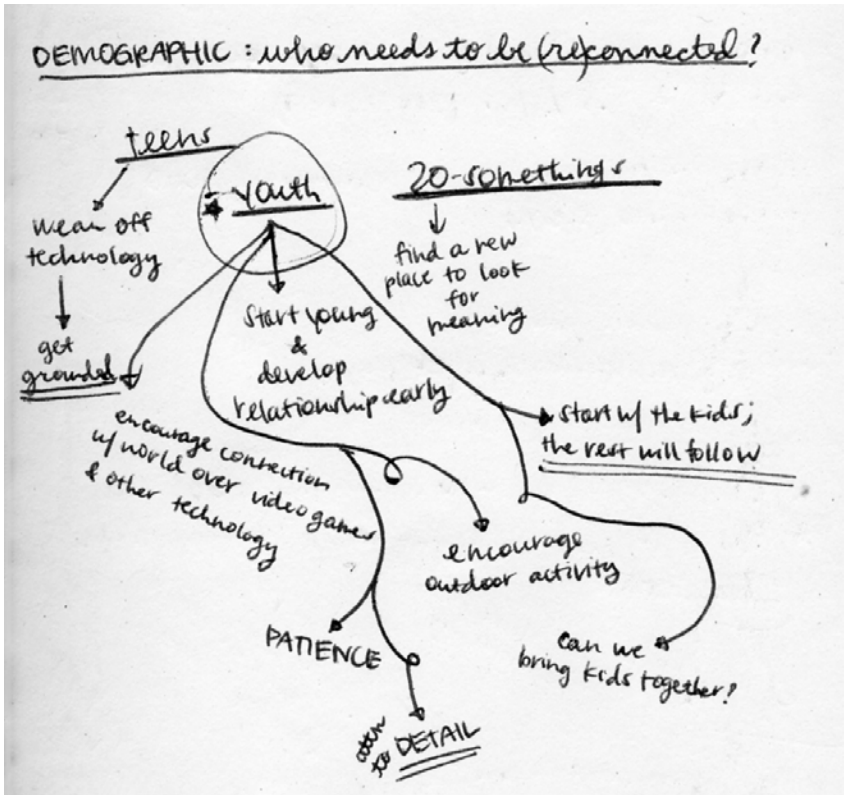 DEMOGRAPHIC: who needs to be (re)connected?
teens
youth
20-somethings
wean off
technology
get
grounded
find a new
place to look
for
meaning
start young
&
develop
relationship early
encourage connection
w/ world over video games
& other technology
start w/ the kids;
the rest will follow
encourage
outdoor activity
PATIENCE
attn
to DETAIL
can we
bring kids together?